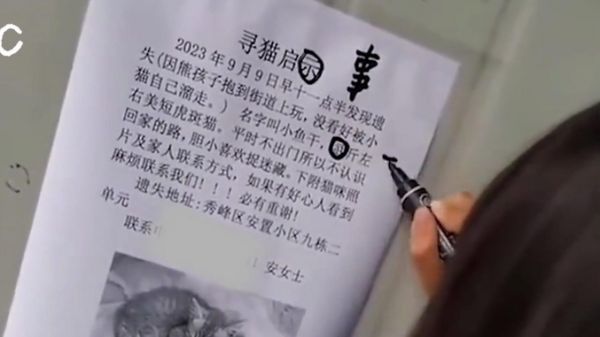 C
寻猫启示 事
2023年9月9日早十一点半发现遗
失(因熊孩子抱到街道上玩，没看好被小
猫自己溜走。) 名字叫小鱼干，斤左
右美短虎斑猫。平时不出门所以不认识
回家的路，胆小喜欢捉迷藏。下附猫咪照
片及家人联系方式，如果有好心人看到
麻烦联系我们！！！必有重谢！
遗失地址：秀峰区安置小区九栋二
单元
联系
安女士